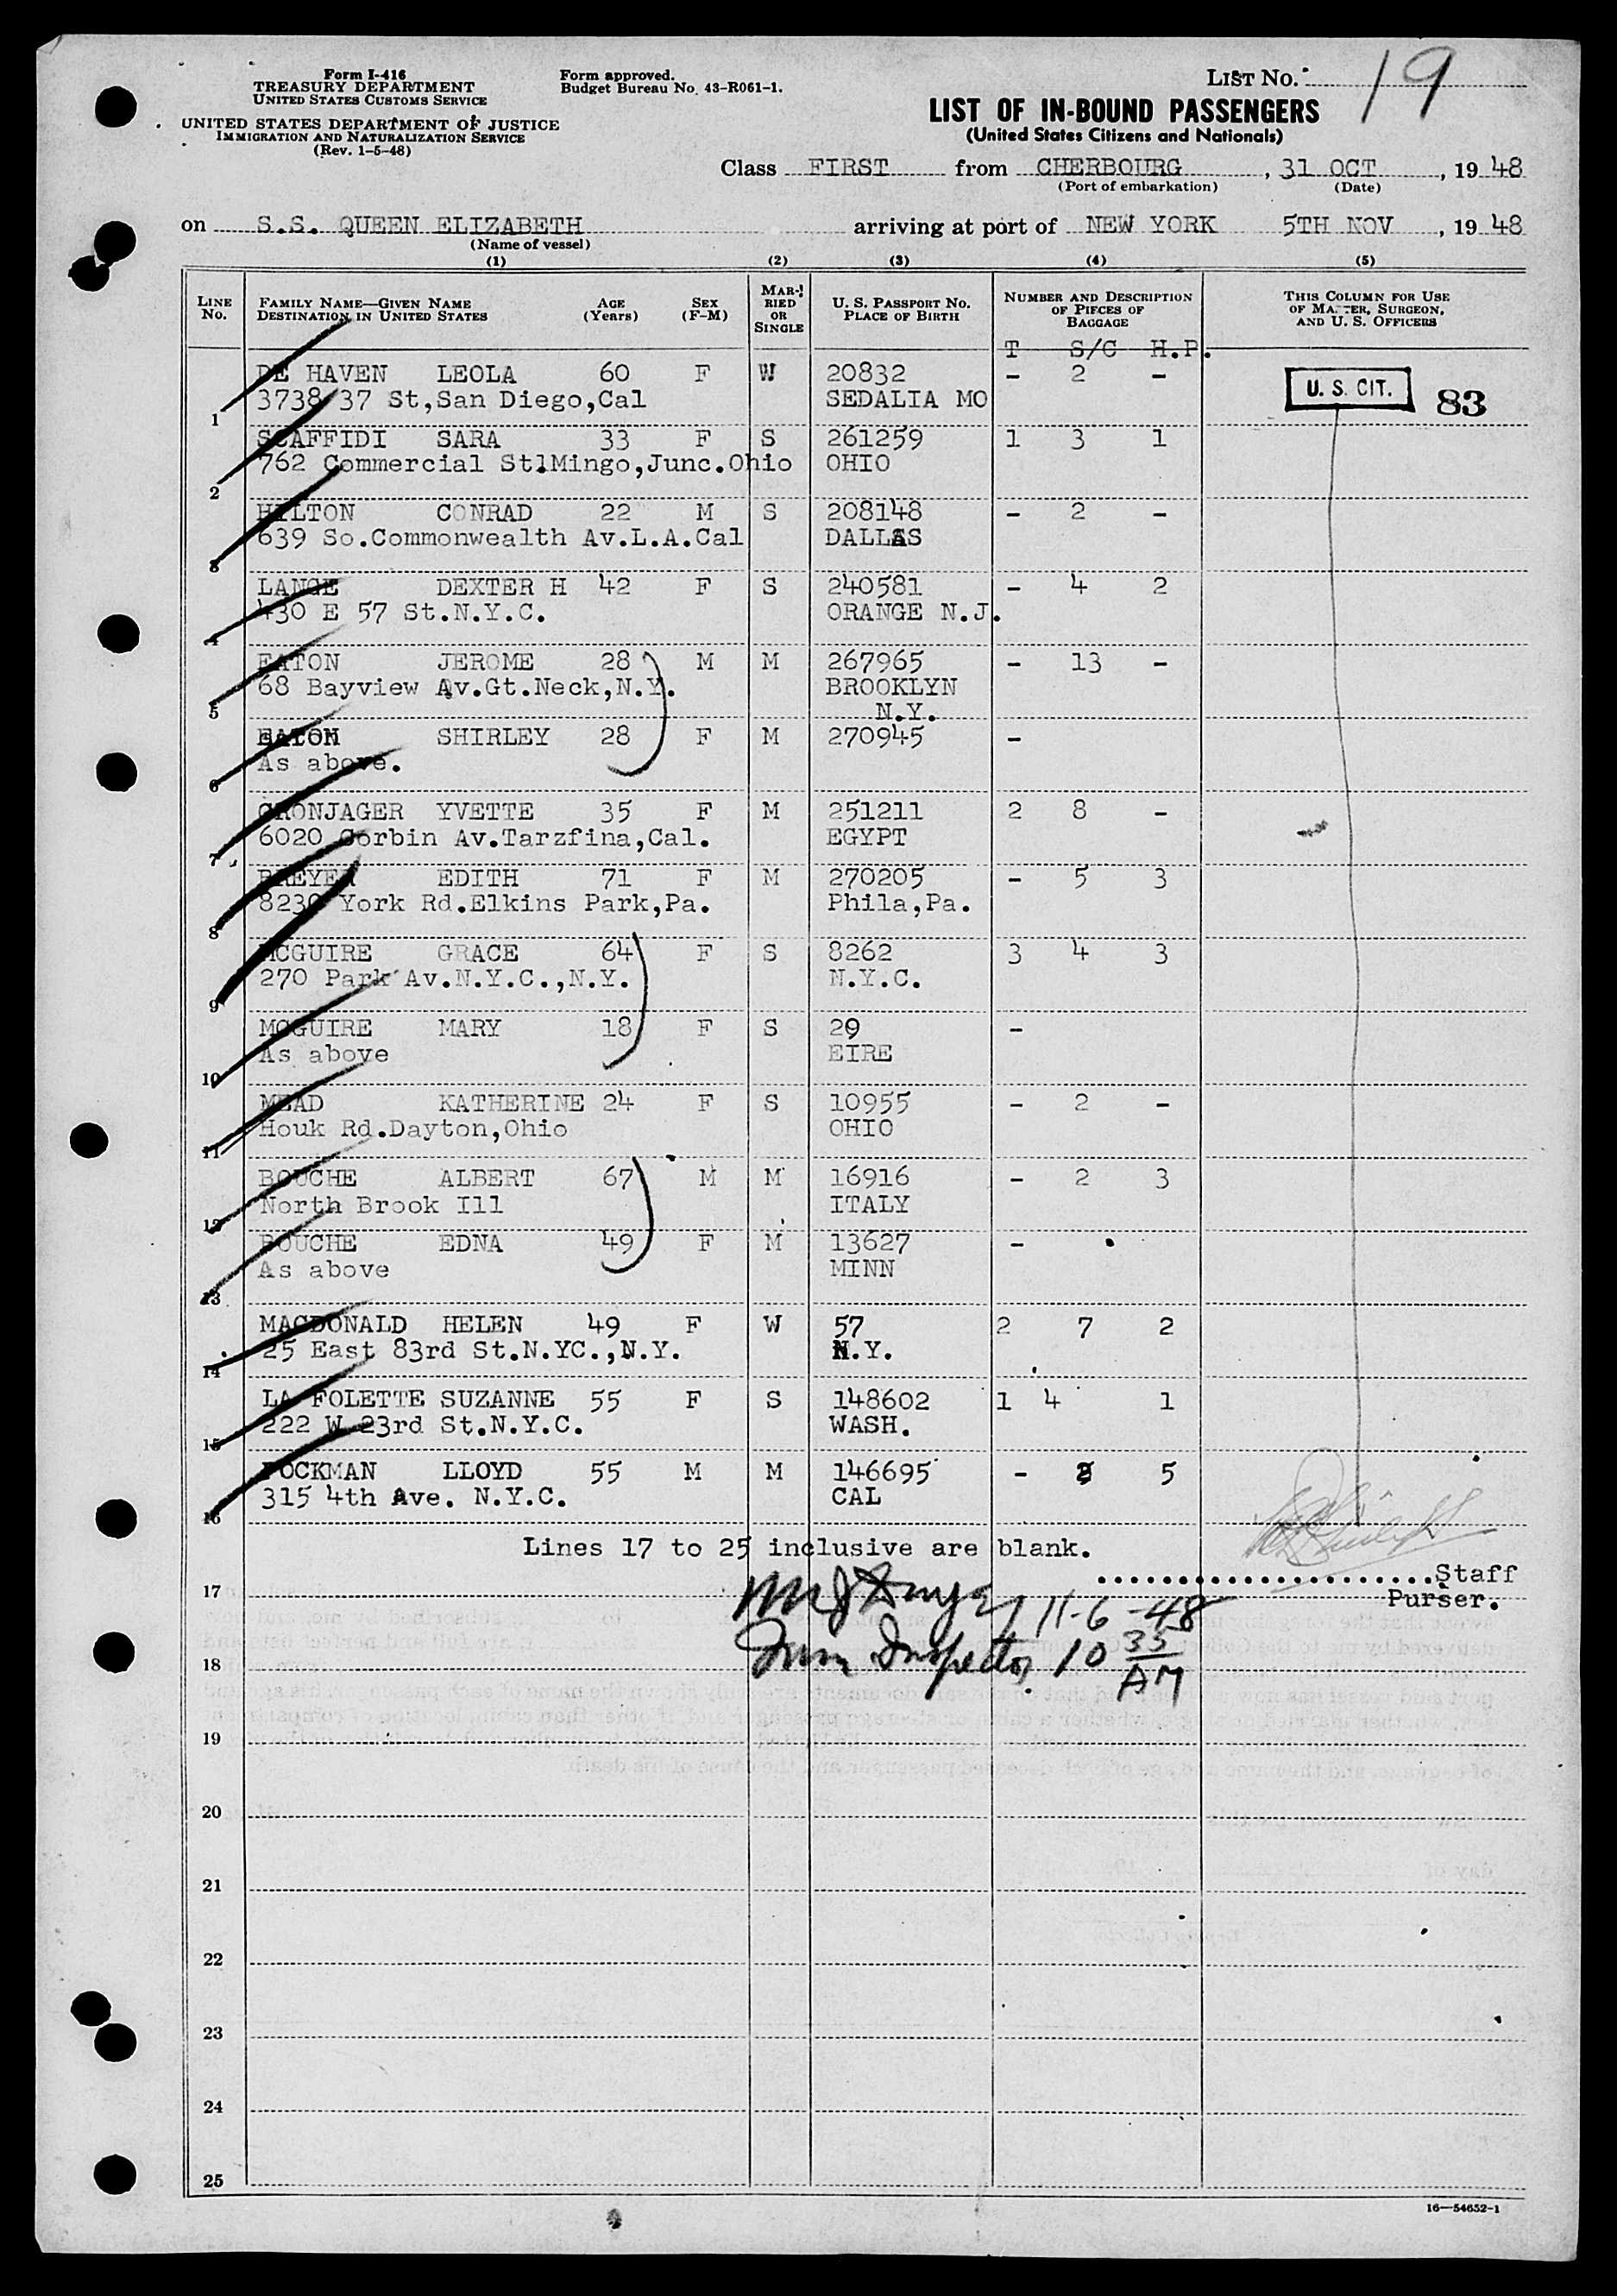 Form I-416
TREASURY DEPARTMENT
UNITED STATES CUSTOMS SERVICE
UNITED STATES DEPARTMENT OF JUSTICE
IMMIGRATION AND NATURALIZATION SERVICE
(Rev. 1-5-48)
Form approved.
Budget Bureau No. 43-R061-1.
LIST No. 19
LIST OF IN-BOUND PASSENGERS
(United States Citizens and Nationals)
Class FIRST from CHERBOURG, 31 OCT, 19 48
(Port of embarkation) (Date)
on S.S. QUEEN ELIZABETH arriving at port of NEW YORK 5TH NOV, 19 48
(Name of vessel)
(1) (2) (3) (4) (5)
LINE No. FAMILY NAME—GIVEN NAME DESTINATION IN UNITED STATES AGE (Years) SEX (F-M) MARRIED OR SINGLE U. S. PASSPORT NO. PLACE OF BIRTH NUMBER AND DESCRIPTION OF PIECES OF BAGGAGE THIS COLUMN FOR USE OF MASTER, SURGEON, AND U. S. OFFICERS
T S/C H.P.
DE HAVEN LEOLA 60 F W 20832 - 2 - U. S. CIT. 83
1 3738 37 St,San Diego,Cal SEDALIA MO
SCAFFIDI SARA 33 F S 261259 1 3 1
2 762 Commercial St.Mingo,Junc.Ohio OHIO
HILTON CONRAD 22 M S 208148 - 2 -
3 639 So.Commonwealth Av.L.A.Cal DALLAS
LANGE DEXTER H 42 F S 240581 - 4 2
4 430 E 57 St.N.Y.C. ORANGE N.J.
EATON JEROME 28 M M 267965 - 13 -
5 68 Bayview Av.Gt.Neck,N.Y. BROOKLYN N.Y.
EATON SHIRLEY 28 F M 270945 -
6 As above.
GRONJAGER YVETTE 35 F M 251211 2 8 -
7 6020 Corbin Av.Tarzfina,Cal. EGYPT
BREYER EDITH 71 F M 270205 - 5 3
8 8230 York Rd.Elkins Park,Pa. Phila,Pa.
MCGUIRE GRACE 64 F S 8262 3 4 3
9 270 Park Av.N.Y.C.,N.Y. N.Y.C.
MCGUIRE MARY 18 F S 29 -
10 As above EIRE
MEAD KATHERINE 24 F S 10955 - 2 -
11 Houk Rd.Dayton,Ohio OHIO
BOUCHE ALBERT 67 M M 16916 - 2 3
12 North Brook Ill ITALY
BOUCHE EDNA 49 F M 13627 -
13 As above MINN
MACDONALD HELEN 49 F W 57 2 7 2
14 25 East 83rd St.N.YC.,N.Y. N.Y.
LA FOLETTE SUZANNE 55 F S 148602 1 4 1
15 222 W 23rd St.N.Y.C. WASH.
POCKMAN LLOYD 55 M M 146695 - 5
16 315 4th Ave. N.Y.C. CAL
Lines 17 to 25 inclusive are blank.
Staff
Purser.
17
11-6-48
Imm Inspector 10 35 AM
18
19
20
21
22
23
24
25
16—54652-1